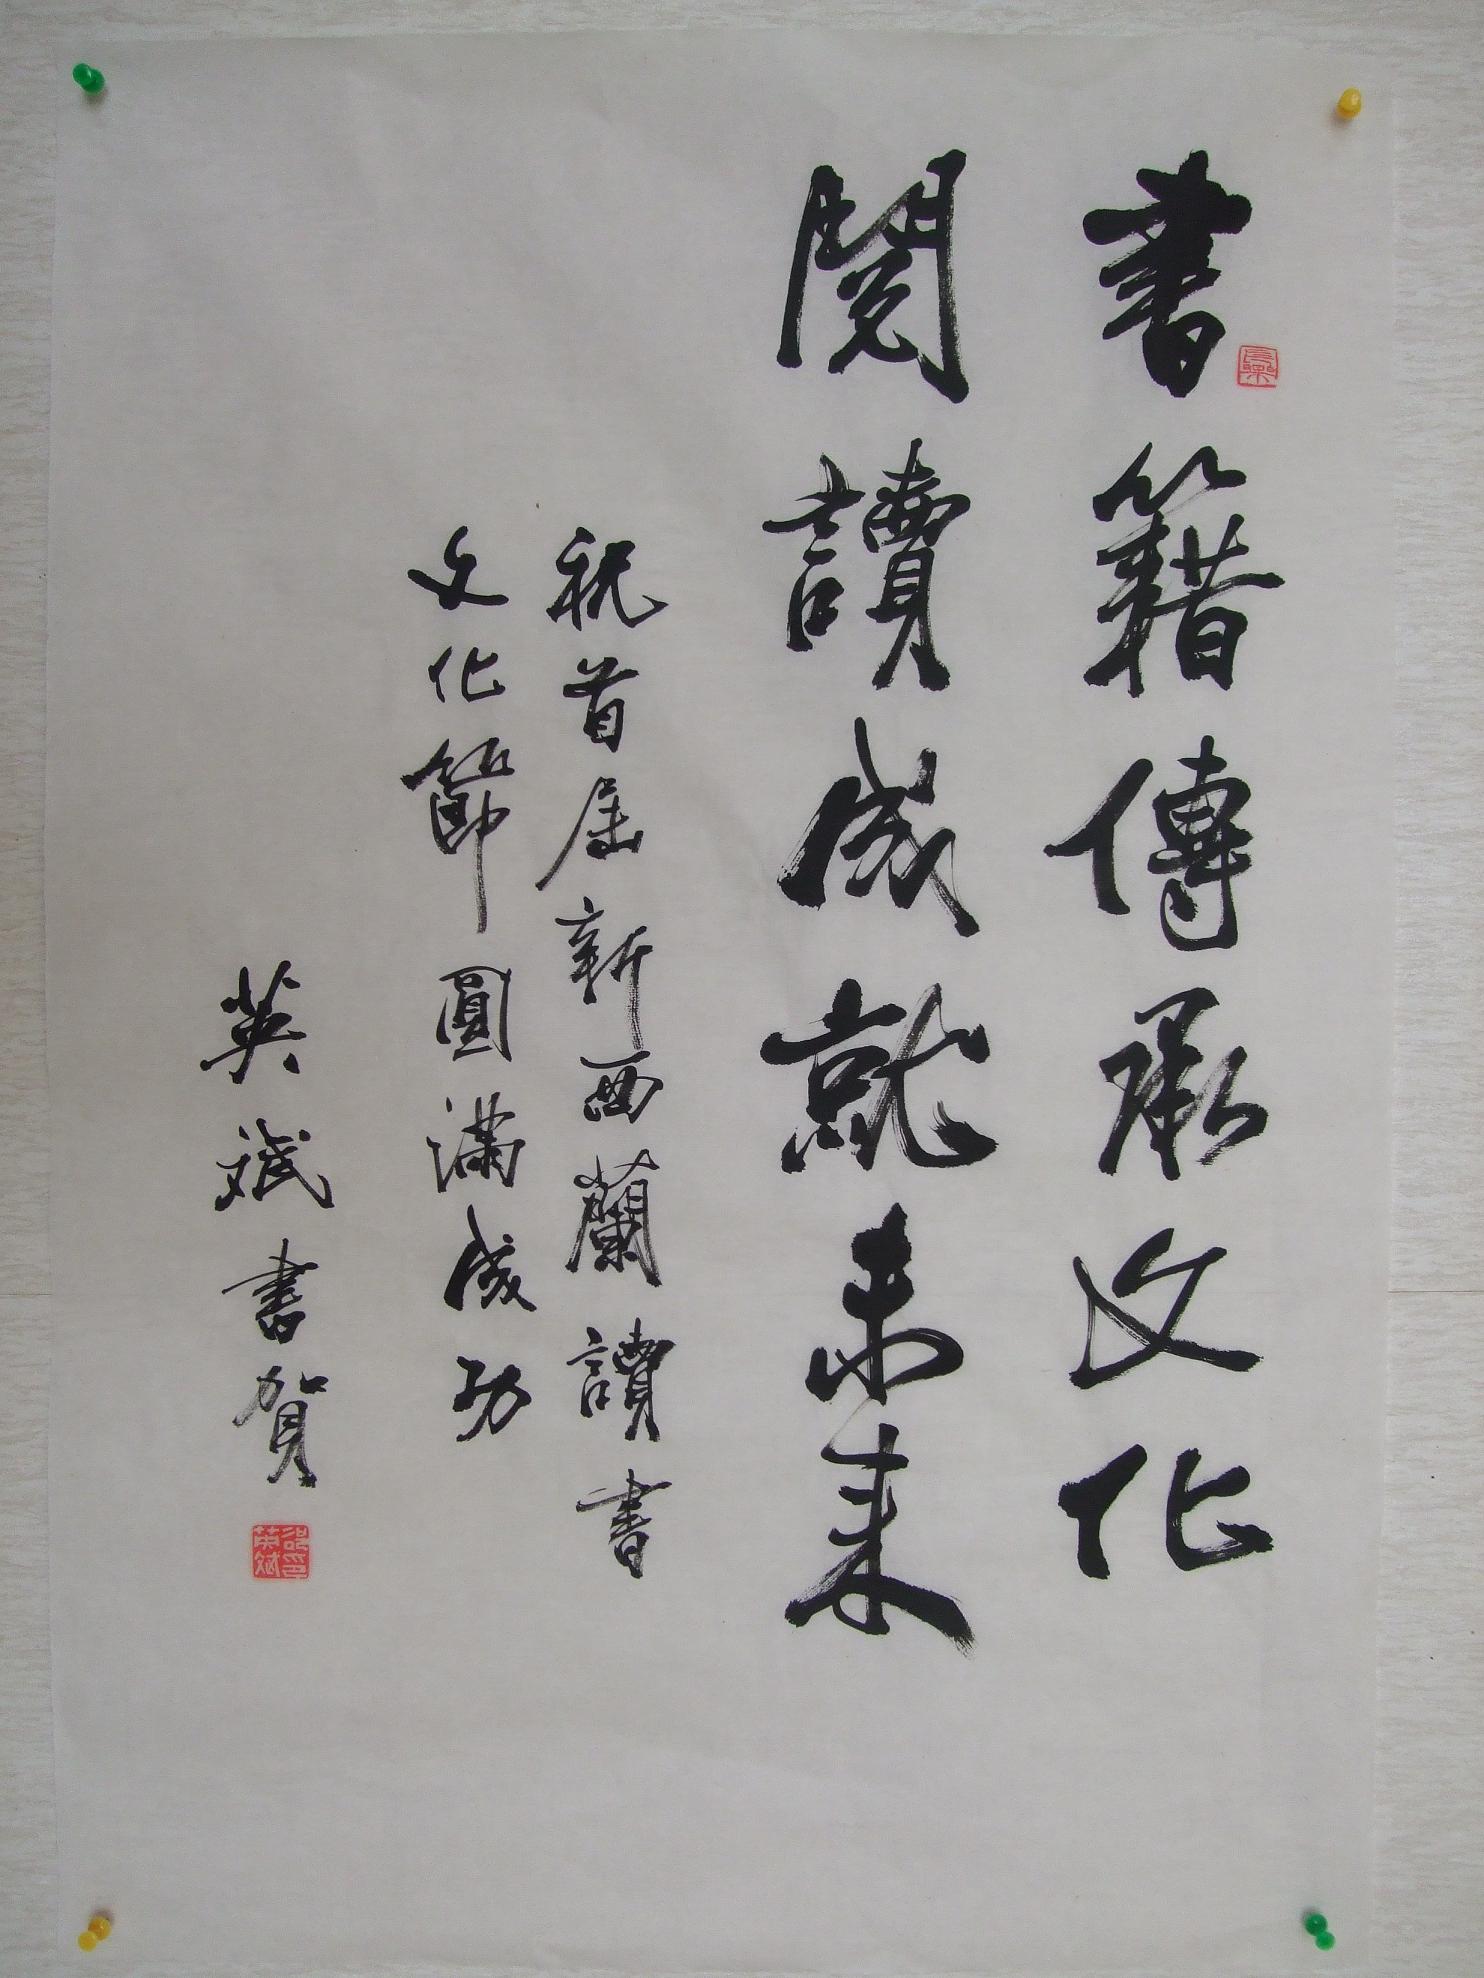 書籍傳承文化
閱讀成就未来
祝首届新西蘭讀書
文化節圓滿成功
英斌書賀